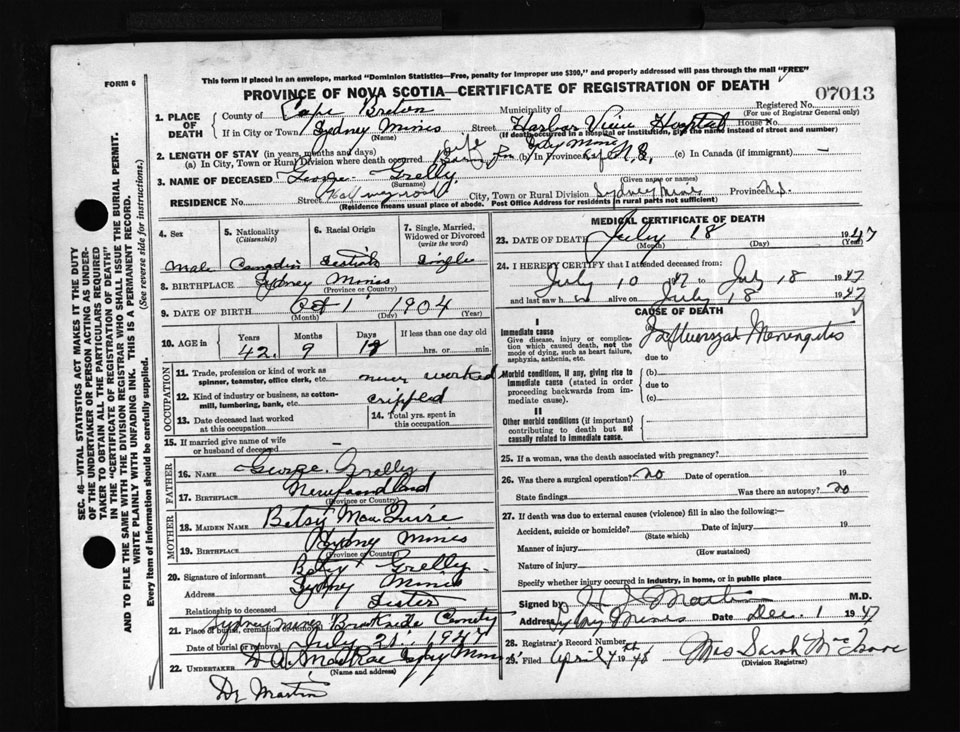 FORM 6
This form if placed in an envelope, marked "Dominion Statistics—Free, penalty for improper use $300," and properly addressed will pass through the mail "FREE"
PROVINCE OF NOVA SCOTIA—CERTIFICATE OF REGISTRATION OF DEATH
07013
SEC. 46—VITAL STATISTICS ACT MAKES IT THE DUTY
OF THE UNDERTAKER OR PERSON ACTING AS UNDER-
TAKER TO OBTAIN ALL THE PARTICULARS REQUIRED
IN THE "CERTIFICATE OF REGISTRATION OF DEATH"
AND TO FILE THE SAME WITH THE DIVISION REGISTRAR WHO SHALL ISSUE THE BURIAL PERMIT.
WRITE PLAINLY WITH UNFADING INK. THIS IS A PERMANENT RECORD.
Every item of information should be carefully supplied. (See reverse side for instructions.)
1. PLACE OF DEATH
County of Cape Breton Municipality of Registered No.
(For use of Registrar General only)
If in City or Town Sydney Mines Street Harbor View Hospital House No.
(Name) (If death occurred in a hospital or institution, give the name instead of street and number)
2. LENGTH OF STAY (in years, months and days)
(a) In City, Town or Rural Division where death occurred life (b) In Province N.S. (c) In Canada (if immigrant) —
3. NAME OF DECEASED George Grelly
(Surname) (Given name or names)
RESIDENCE No. Street City, Town or Rural Division Sydney Mines Province N.S.
(Residence means usual place of abode. Post Office Address for residents in rural parts not sufficient)
4. Sex Male
5. Nationality (Citizenship) Canadian
6. Racial Origin
7. Single, Married, Widowed or Divorced (write the word) Single
8. BIRTHPLACE Sydney Mines
(Province or Country)
9. DATE OF BIRTH Oct 1 1904
(Month) (Day) (Year)
10. AGE in Years 42 Months 9 Days If less than one day hrs. or min.
OCCUPATION
11. Trade, profession or kind of work as spinner, teamster, office clerk, etc. never worked
12. Kind of industry or business, as cotton-mill, lumbering, bank, etc. crippled
13. Date deceased last worked at this occupation
14. Total yrs. spent in this occupation
15. If married give name of wife or husband of deceased —
FATHER
16. NAME George Grelly
17. BIRTHPLACE Newfoundland
(Province or Country)
MOTHER
18. MAIDEN NAME Betsy MacGuire
19. BIRTHPLACE Sydney Mines
(Province or Country)
20. Signature of informant Betsy Grelly
Address Sydney Mines
Relationship to deceased Sister
21. Place of burial, cremation or removal Sydney Mines Brookside
Date of burial or removal July 21 1947
22. UNDERTAKER Syd Mines
(Name and address)
Dr Martin
MEDICAL CERTIFICATE OF DEATH
23. DATE OF DEATH July 18 1947
(Month) (Day) (Year)
24. I HEREBY CERTIFY that I attended deceased from:
July 10 47 to July 18 1947
and last saw h im alive on July 18 1947
CAUSE OF DEATH
I
Immediate cause
Give disease, injury or complication which caused death, not the mode of dying, such as heart failure, asphyxia, asthenia, etc.
(a) Influenzal Meningitis
due to
Morbid conditions, if any, giving rise to immediate cause (stated in order proceeding backwards from immediate cause).
(b)
due to
(c)
II
Other morbid conditions (if important) contributing to death but not causally related to immediate cause.
25. If a woman, was the death associated with pregnancy?
26. Was there a surgical operation? no Date of operation 19
State findings Was there an autopsy? no
27. If death was due to external causes (violence) fill in also the following:—
Accident, suicide or homicide? Date of injury 19
(State which)
Manner of injury
(How sustained)
Nature of injury
Specify whether injury occurred in industry, in home, or in public place
Signed by Martin M.D.
Address Sydney Mines Date Dec. 1 1947
28. Registrar's Record Number
29. Filed April 4th 1948 Mrs Sarah
(Division Registrar)